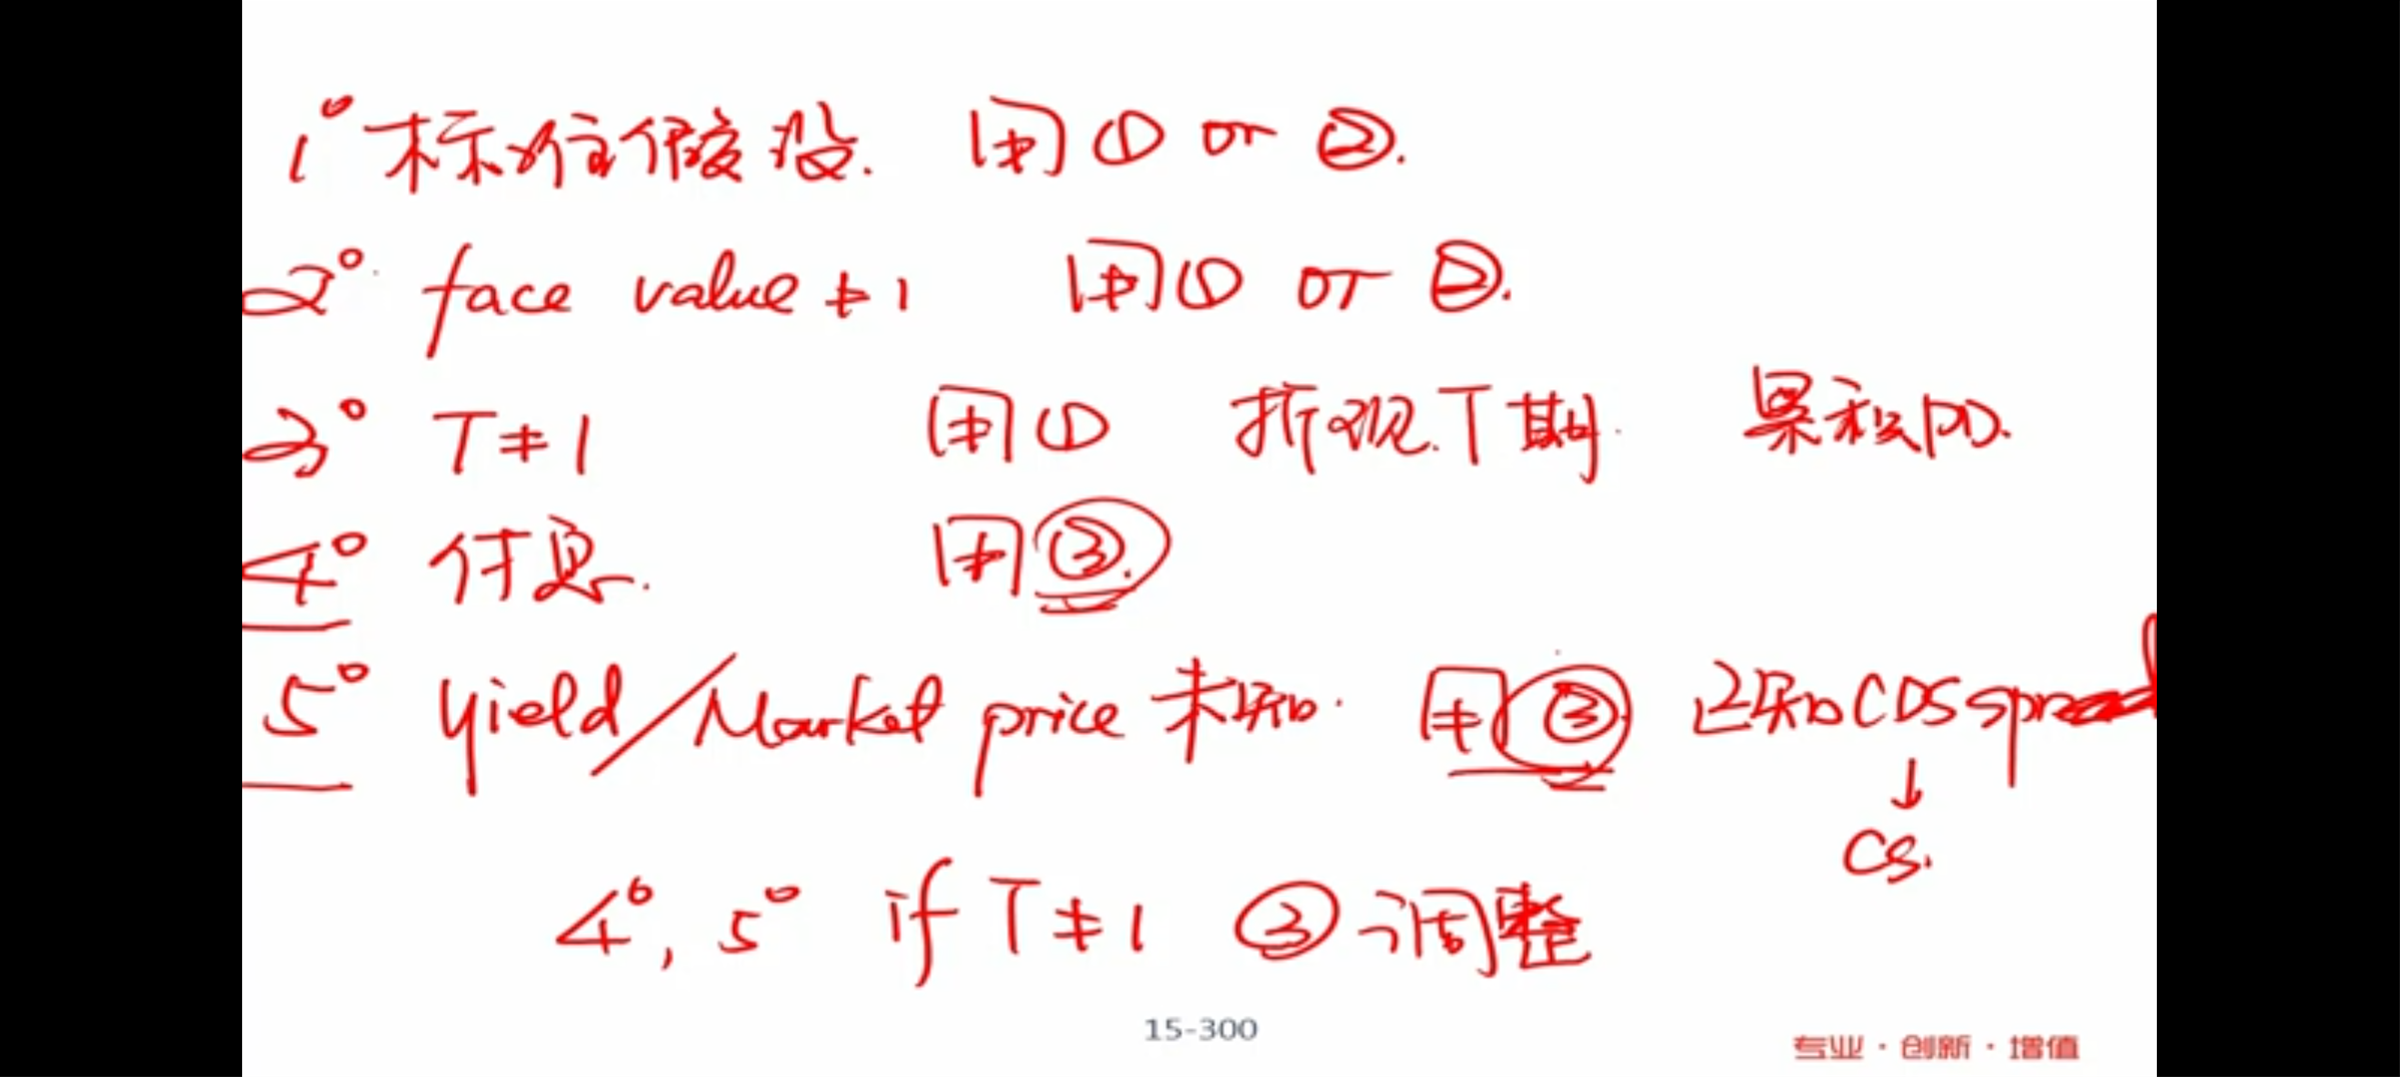 1° 标准假设. 用① or ②.
2° face value ≠ 1 用① or ②.
3° T ≠ 1 用① 折现T期. 累积PD.
4° 付息. 用③.
5° Yield/Market price 未知. 用③ 已知CDS spread
↓
CS.
4°, 5° if T ≠ 1 ③调整
15-300
专业·创新·增值